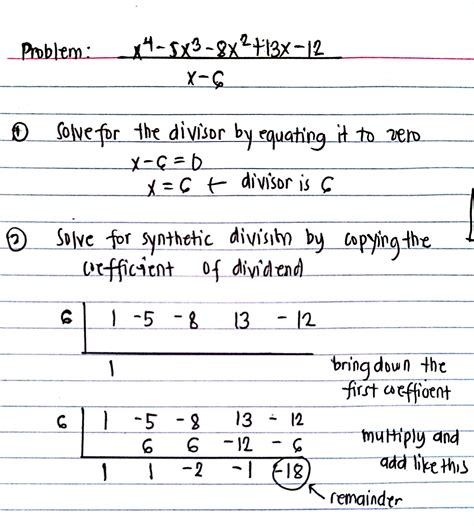 Problem: x⁴-5x³-8x²+13x-12
x-6
① Solve for the divisor by equating it to zero
x-6=0
x=6 ← divisor is 6
② Solve for synthetic division by copying the
coefficient of dividend
6 | 1 -5 -8 13 -12
1 bring down the
first coefficent
6 | 1 -5 -8 13 -12
6 6 -12 -6 multiply and
1 1 -2 -1 -18 add like this
remainder